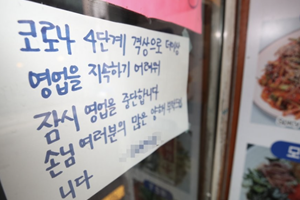 코로나 4단계 격상으로 더이상
영업을 지속하기 어려워
잠시 영업을 중단합니다
손님 여러분의 많은 양해
니다
모